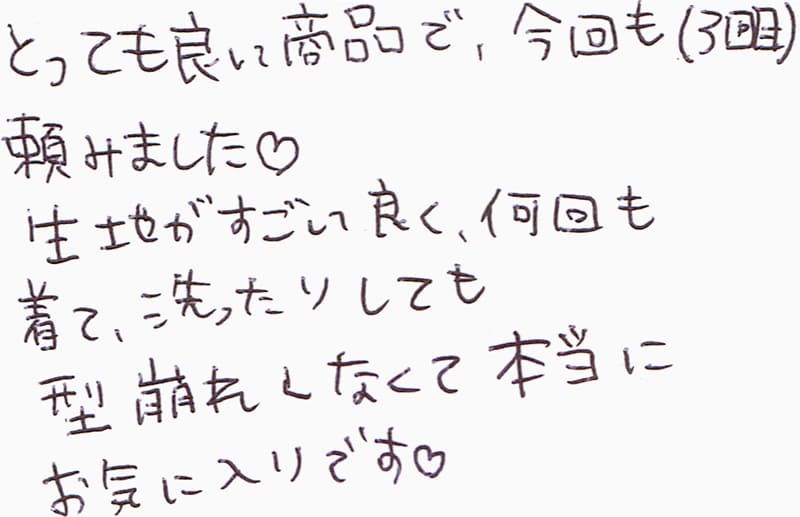 とっても良い商品で、今回も(3回目)
頼みました♡
生地がすごい良く、何回も
着て、洗ったりしても
型崩れしなくて本当に
お気に入りです♡